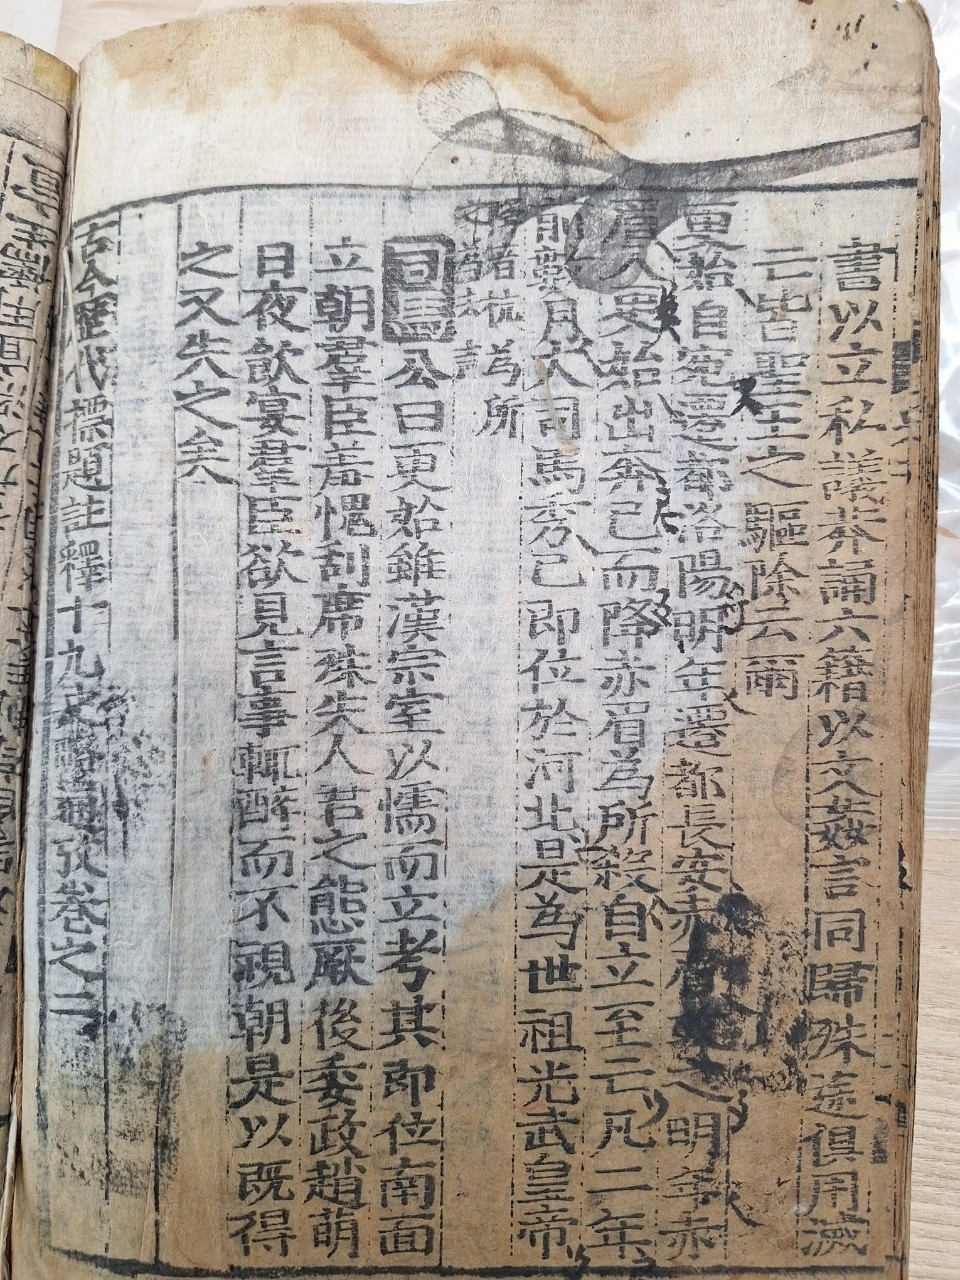 書以立私議莽誦六籍以文姦言同歸殊途俱用滅
亡皆聖王之驅除云爾
更始自宛遷都洛陽明年遷都長安赤眉 之明年赤
眉入更始出奔已而降赤眉為所殺自立至亡凡二年
前數月大司馬秀已即位於河北是為世祖光武皇帝
為所
司馬公曰更始雖漢宗室以懦而立考其即位南面
立朝羣臣羞愧刮席殊失人君之態厥後委政趙萌
日夜飲宴羣臣欲見言事輒醉而不視朝是以既得
之又失之矣
古今歷代標題註釋十九史略通攷卷之二